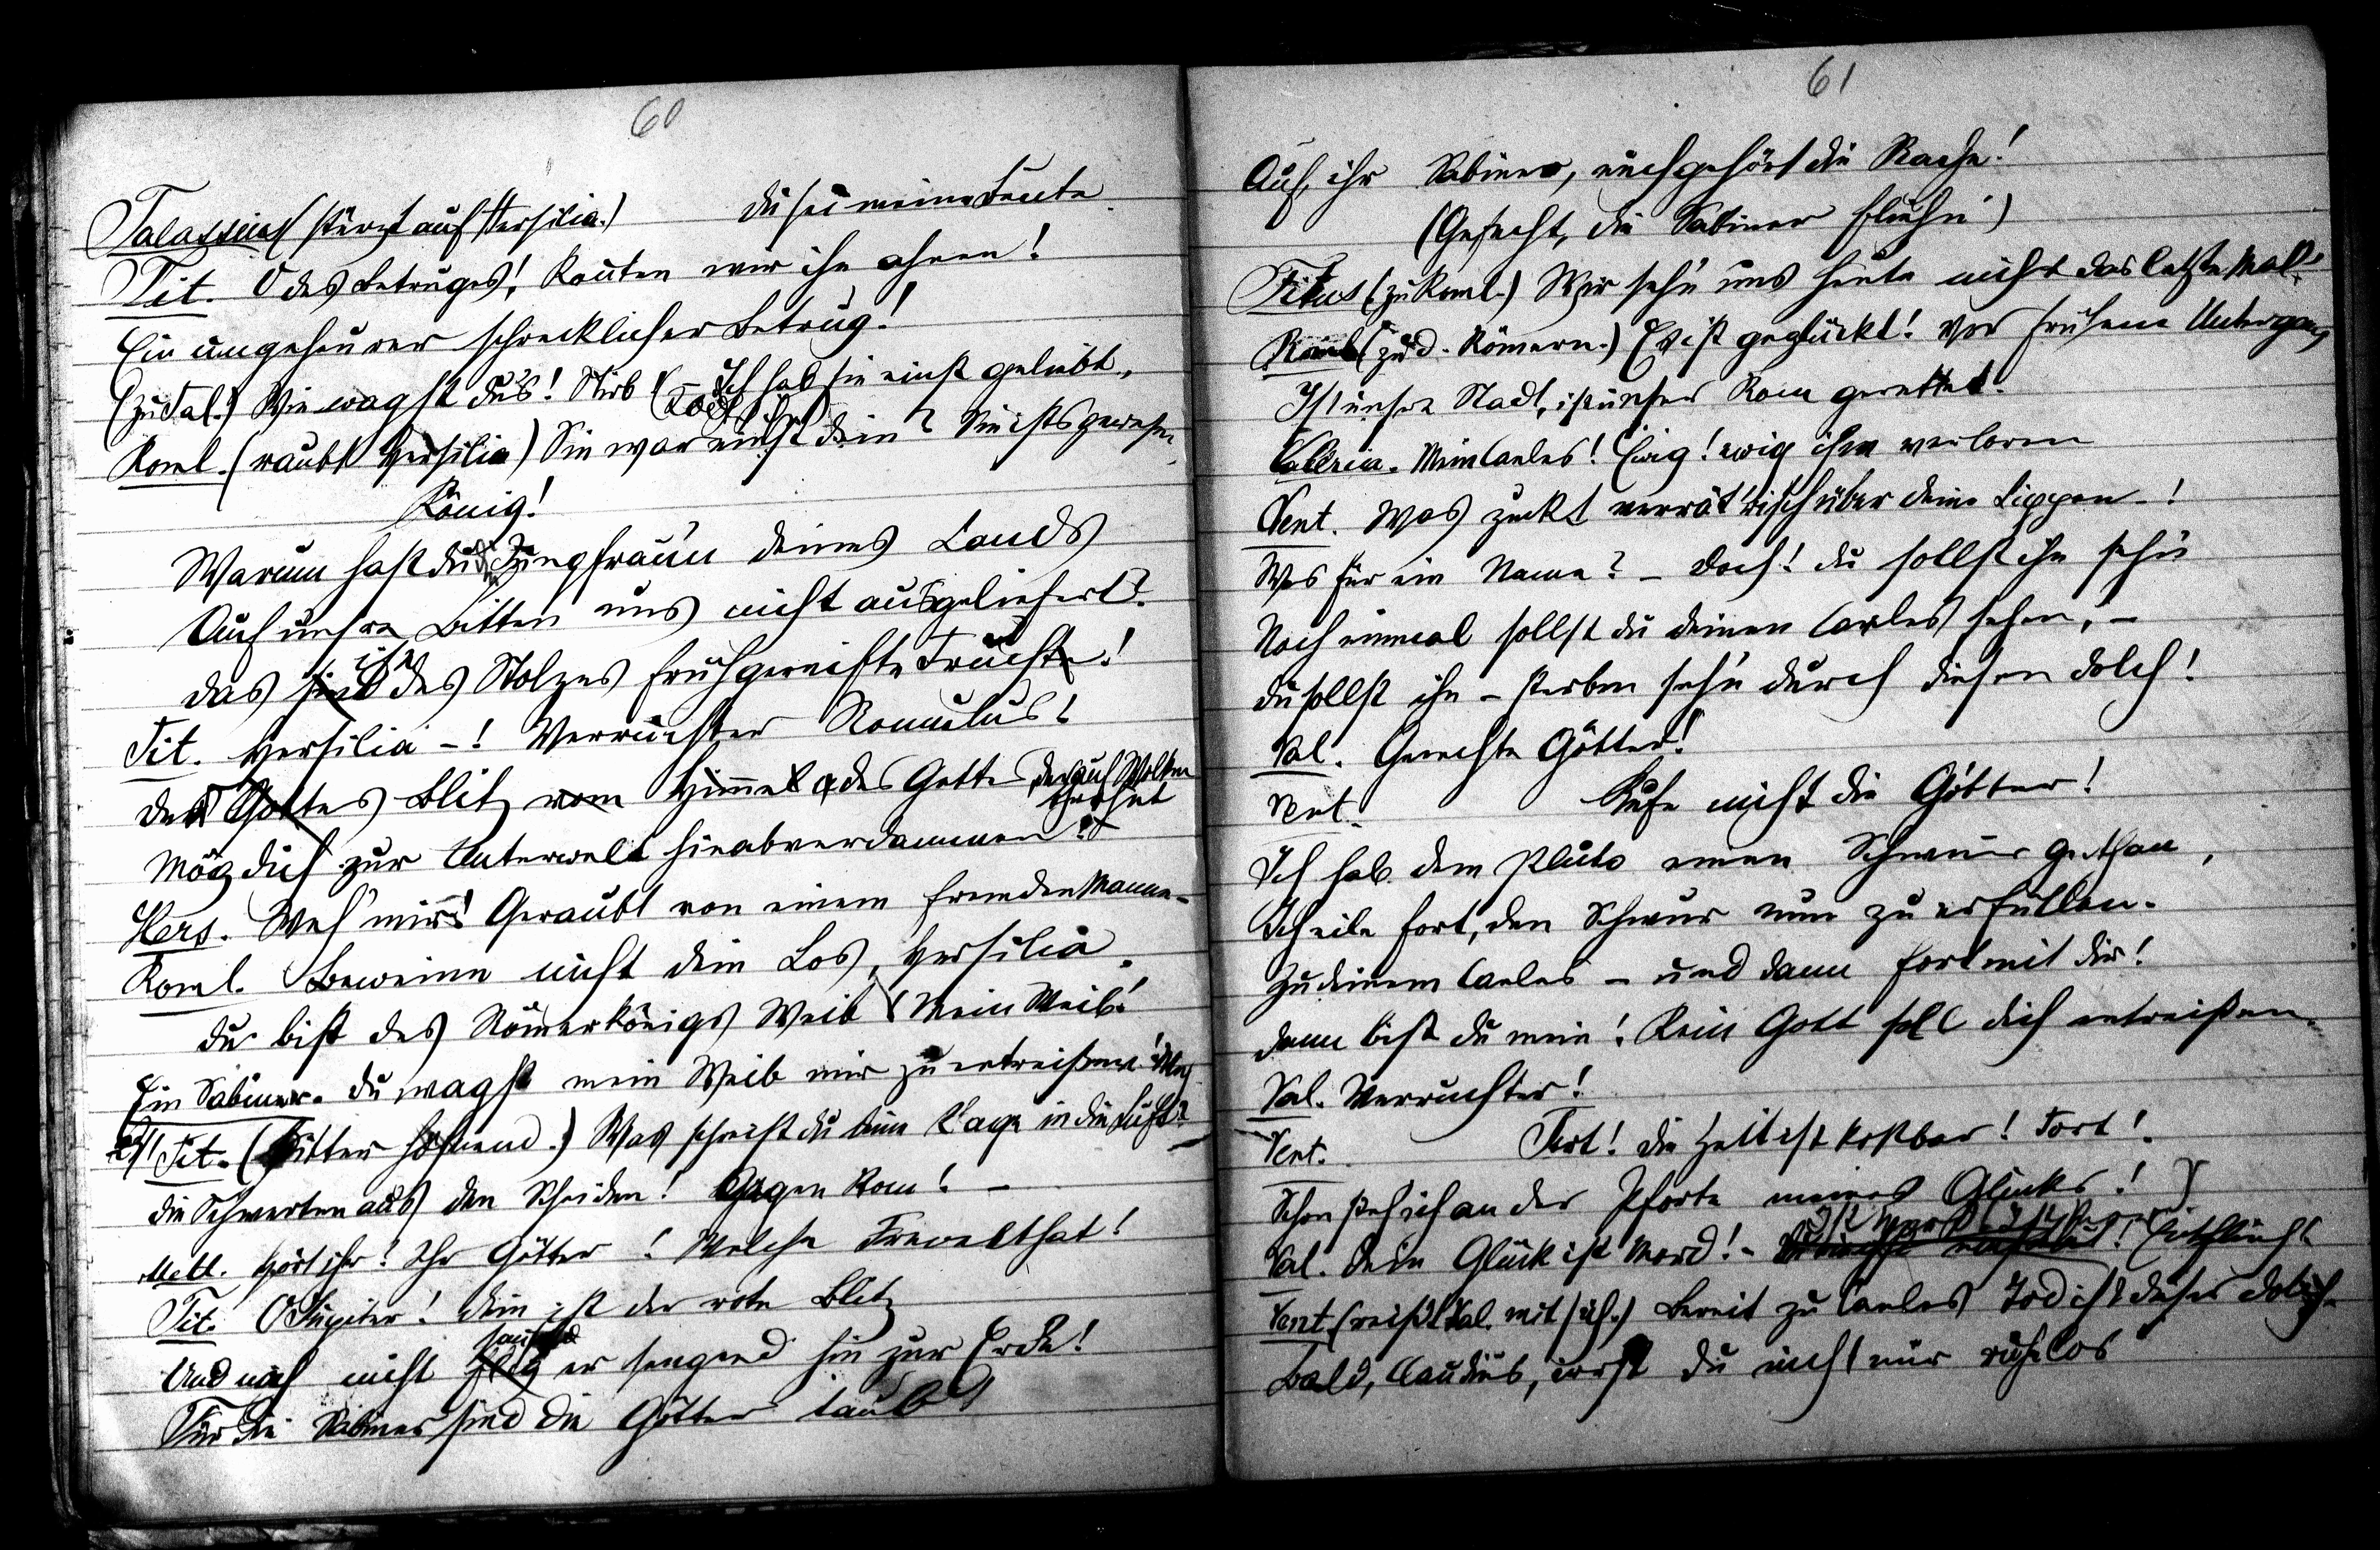 60
Talassius (stürzt auf Hersilia.) Du sei meine Beute.
Tit. O des Betruges! Konnten wir ihn ahnen!
Ein ungeheurer schrecklicher Betrug!
(zu Tal.) Wie wagst du's! Stirb! (Tödt ihn) Ich hab sie einst geliebt.,
Roml. (raubt Hersilia) Sie war einst dein? Sie ists gewesen
König!
Warum hast du die Jungfrau'n deines Lands
Auf unsre Bitten uns nicht ausgeliefert?
Das sind ist des Stolzes frühgereifte Frucht!
Tit. Hersilia -! Verruchter Romulus!
Des Gottes Blitz vom Himmel des Gottes, der auf Wolken thront
Mög dich zur Unterwelt hinabverdammen!
Hers. Weh' mir! Geraubt von einem fremden Manne-
Roml. Beweine nicht dein Los, Hersilia.
Du bist des Römerkönigs Weib! Mein Weib!
Ein Sabiner. Du wagst mein Weib mir zu entreißen!
Tit. (bitter höhnend.) Was schreist du deine Klage in die Luft?
Die Schwerter aus den Scheiden! Gegen Rom! -
Mett. Hört ihr! Ihr Götter! Welche Frevelthat!
Tit. O Jupiter! Dein ist der rote Blitz
Und noch nicht flog sausend er sengend hin zur Erde!
Für die Sabiner sind die Götter taub!
61
Auf, ihr Sabiner, euch gehört die Rache!
(Gefecht, die Sabiner flieh'n)
Titus (zu Roml.) Wir seh'n uns heute nicht das letzte Mal.
Roml (zu d. Römern.) Es ist geglückt! Vor frühem Untergang
Ist unsre Stadt, ist unser Rom gerettet.
Mein Caeles! Ewig! ewig ihm verloren
Vent. Was zuckt verrät'risch über deine Lippen -!
Was für ein Name? - Doch! du sollst ihn seh'n
Noch einmal sollst du deinen Caeles sehen, -
Du sollst ihn - sterben seh'n durch diesen Dolch!
Val. Gerechte Götter!
Vent. Rufe nicht die Götter!
Ich hab dem Pluto einen Schwur gethan,
Ich eile fort, den Schwur nun zu erfüllen.
Zu deinem Caeles - und dann fort mit dir!
Dann bist du mein! Kein Gott soll dich entreißen.
Val. Verruchter!
Vent. Fort! Die Zeit ist kostbar! Fort!
Schon steh ich an der Pforte meines Glücks!
Val. Dein Glück ist Mord! -
Vent. (reißt Val. mit sich.) Bereit zu Caeles Tod ist dieser Dolch.
Bald, Claudius, wirst du nicht nur ruhelos